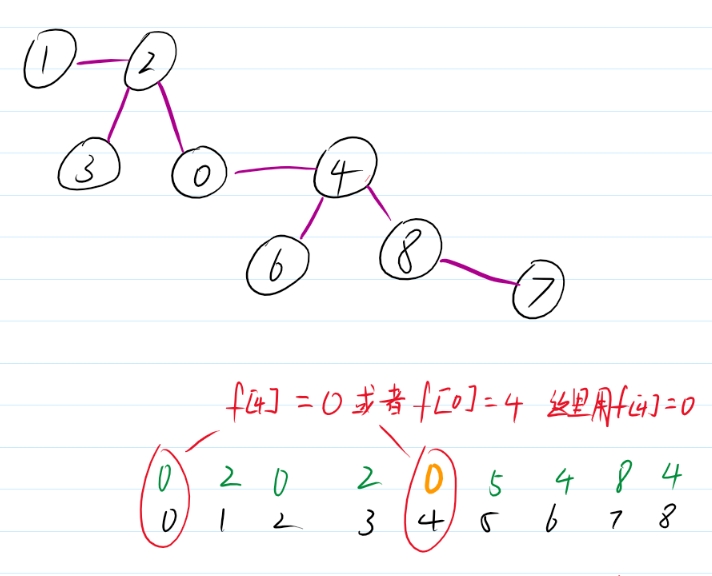 1 2
3 0 4
6 8
7
f[4] = 0 或者 f[0] = 4 这里用f[4]=0
0 2 0 2 0 5 4 8 4
0 1 2 3 4 5 6 7 8